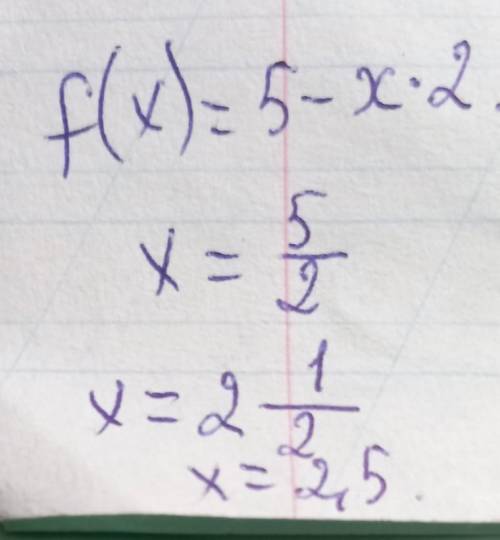 f(x) = 5 - x · 2.
x = 5/2
x = 2 1/2
x = 2,5.